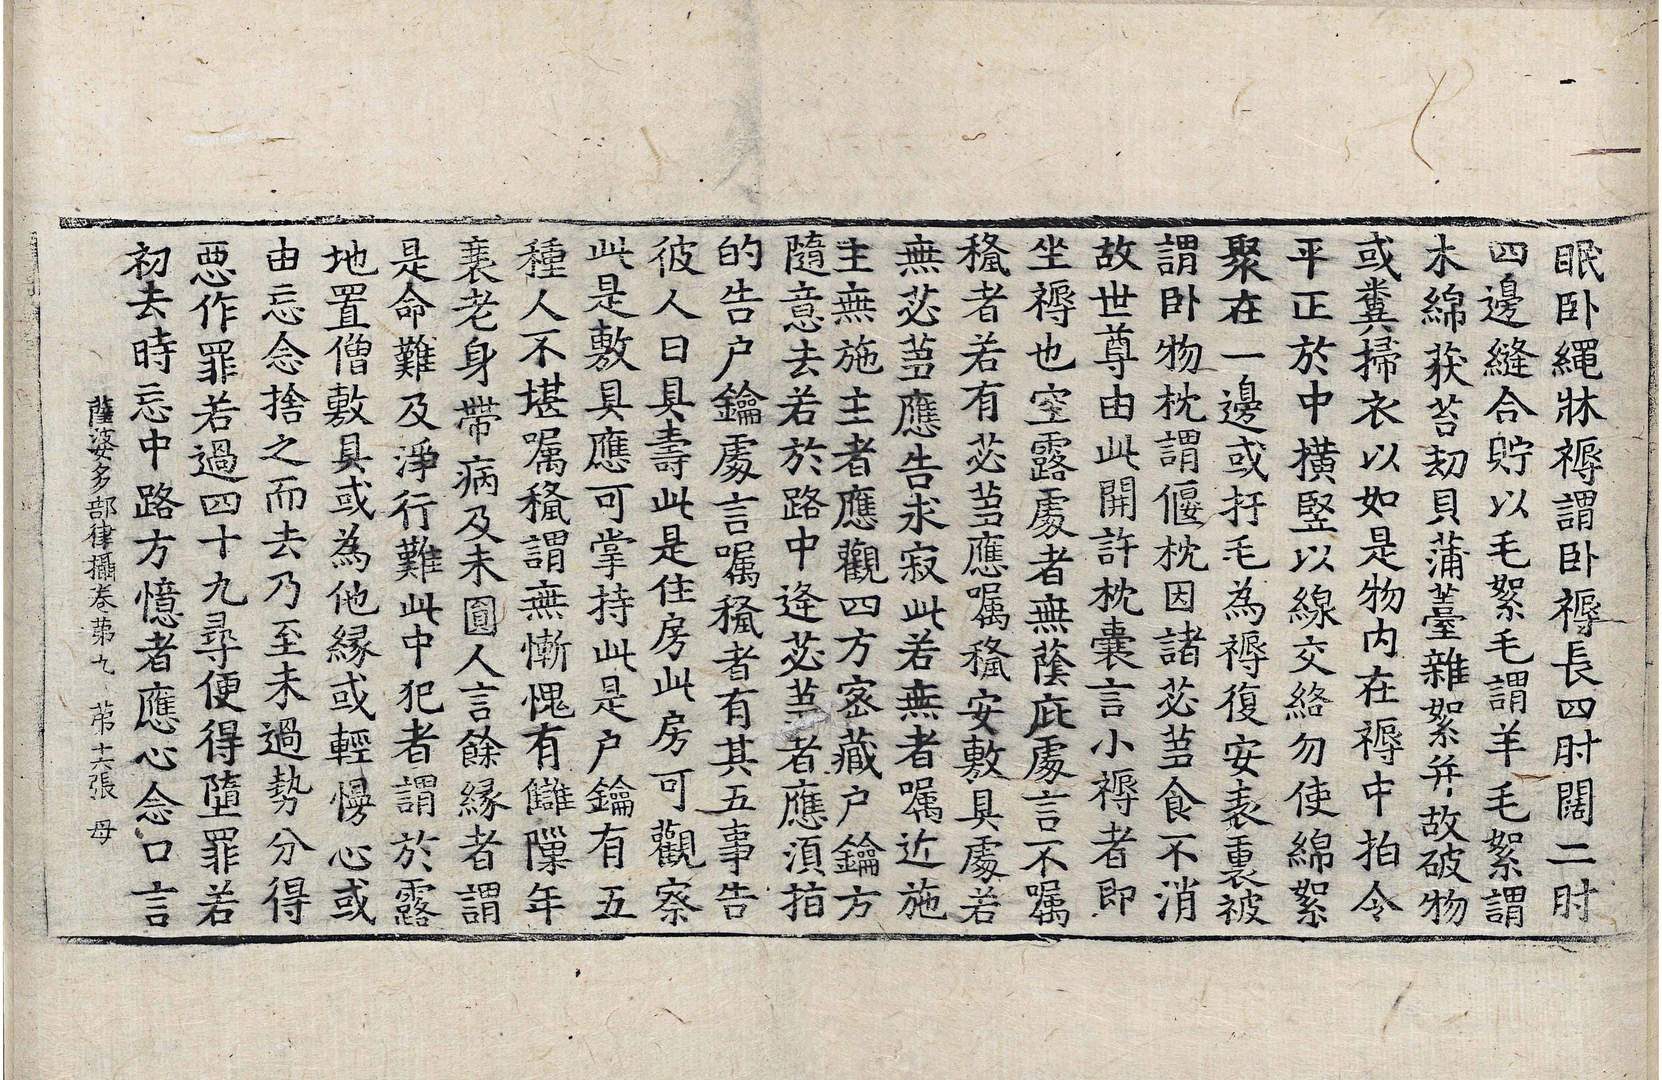 眠卧繩牀褥謂卧褥長四肘闊二肘
四邊縫合貯以毛絮毛謂羊毛絮謂
木綿荻苔刼貝蒲薹雜絮并故破物
或糞掃衣以如是物內在褥中拍令
平正於中橫竪以線交絡勿使綿絮
聚在一邊或扜毛為褥復安表裏被
謂卧物枕謂偃枕因諸苾芻食不消
故世尊由此開許枕囊言小褥者即
坐褥也空露處者無蔭庇處言不囑
授者若有苾芻應囑授安敷具處若
無苾芻應告求寂此若無者囑近施
主無施主者應觀四方密藏户鑰方
隨意去若於路中逄苾芻者應湏指
的告户鑰處言囑授者有其五事告
彼人曰具壽此是住房此房可觀察
此是敷具應可掌持此是户鑰有五
種人不堪囑授謂無慚愧有讎隟年
衰老身帶病及未圓人言餘緣者謂
是命難及淨行難此中犯者謂於露
地置僧敷具或為他緣或輕慢心或
由忘念捨之而去乃至未過勢分得
惡作罪若過四十九尋便得墮罪若
初去時忘中路方憶者應心念口言
薩婆多部律攝卷苐九 苐十六張 母